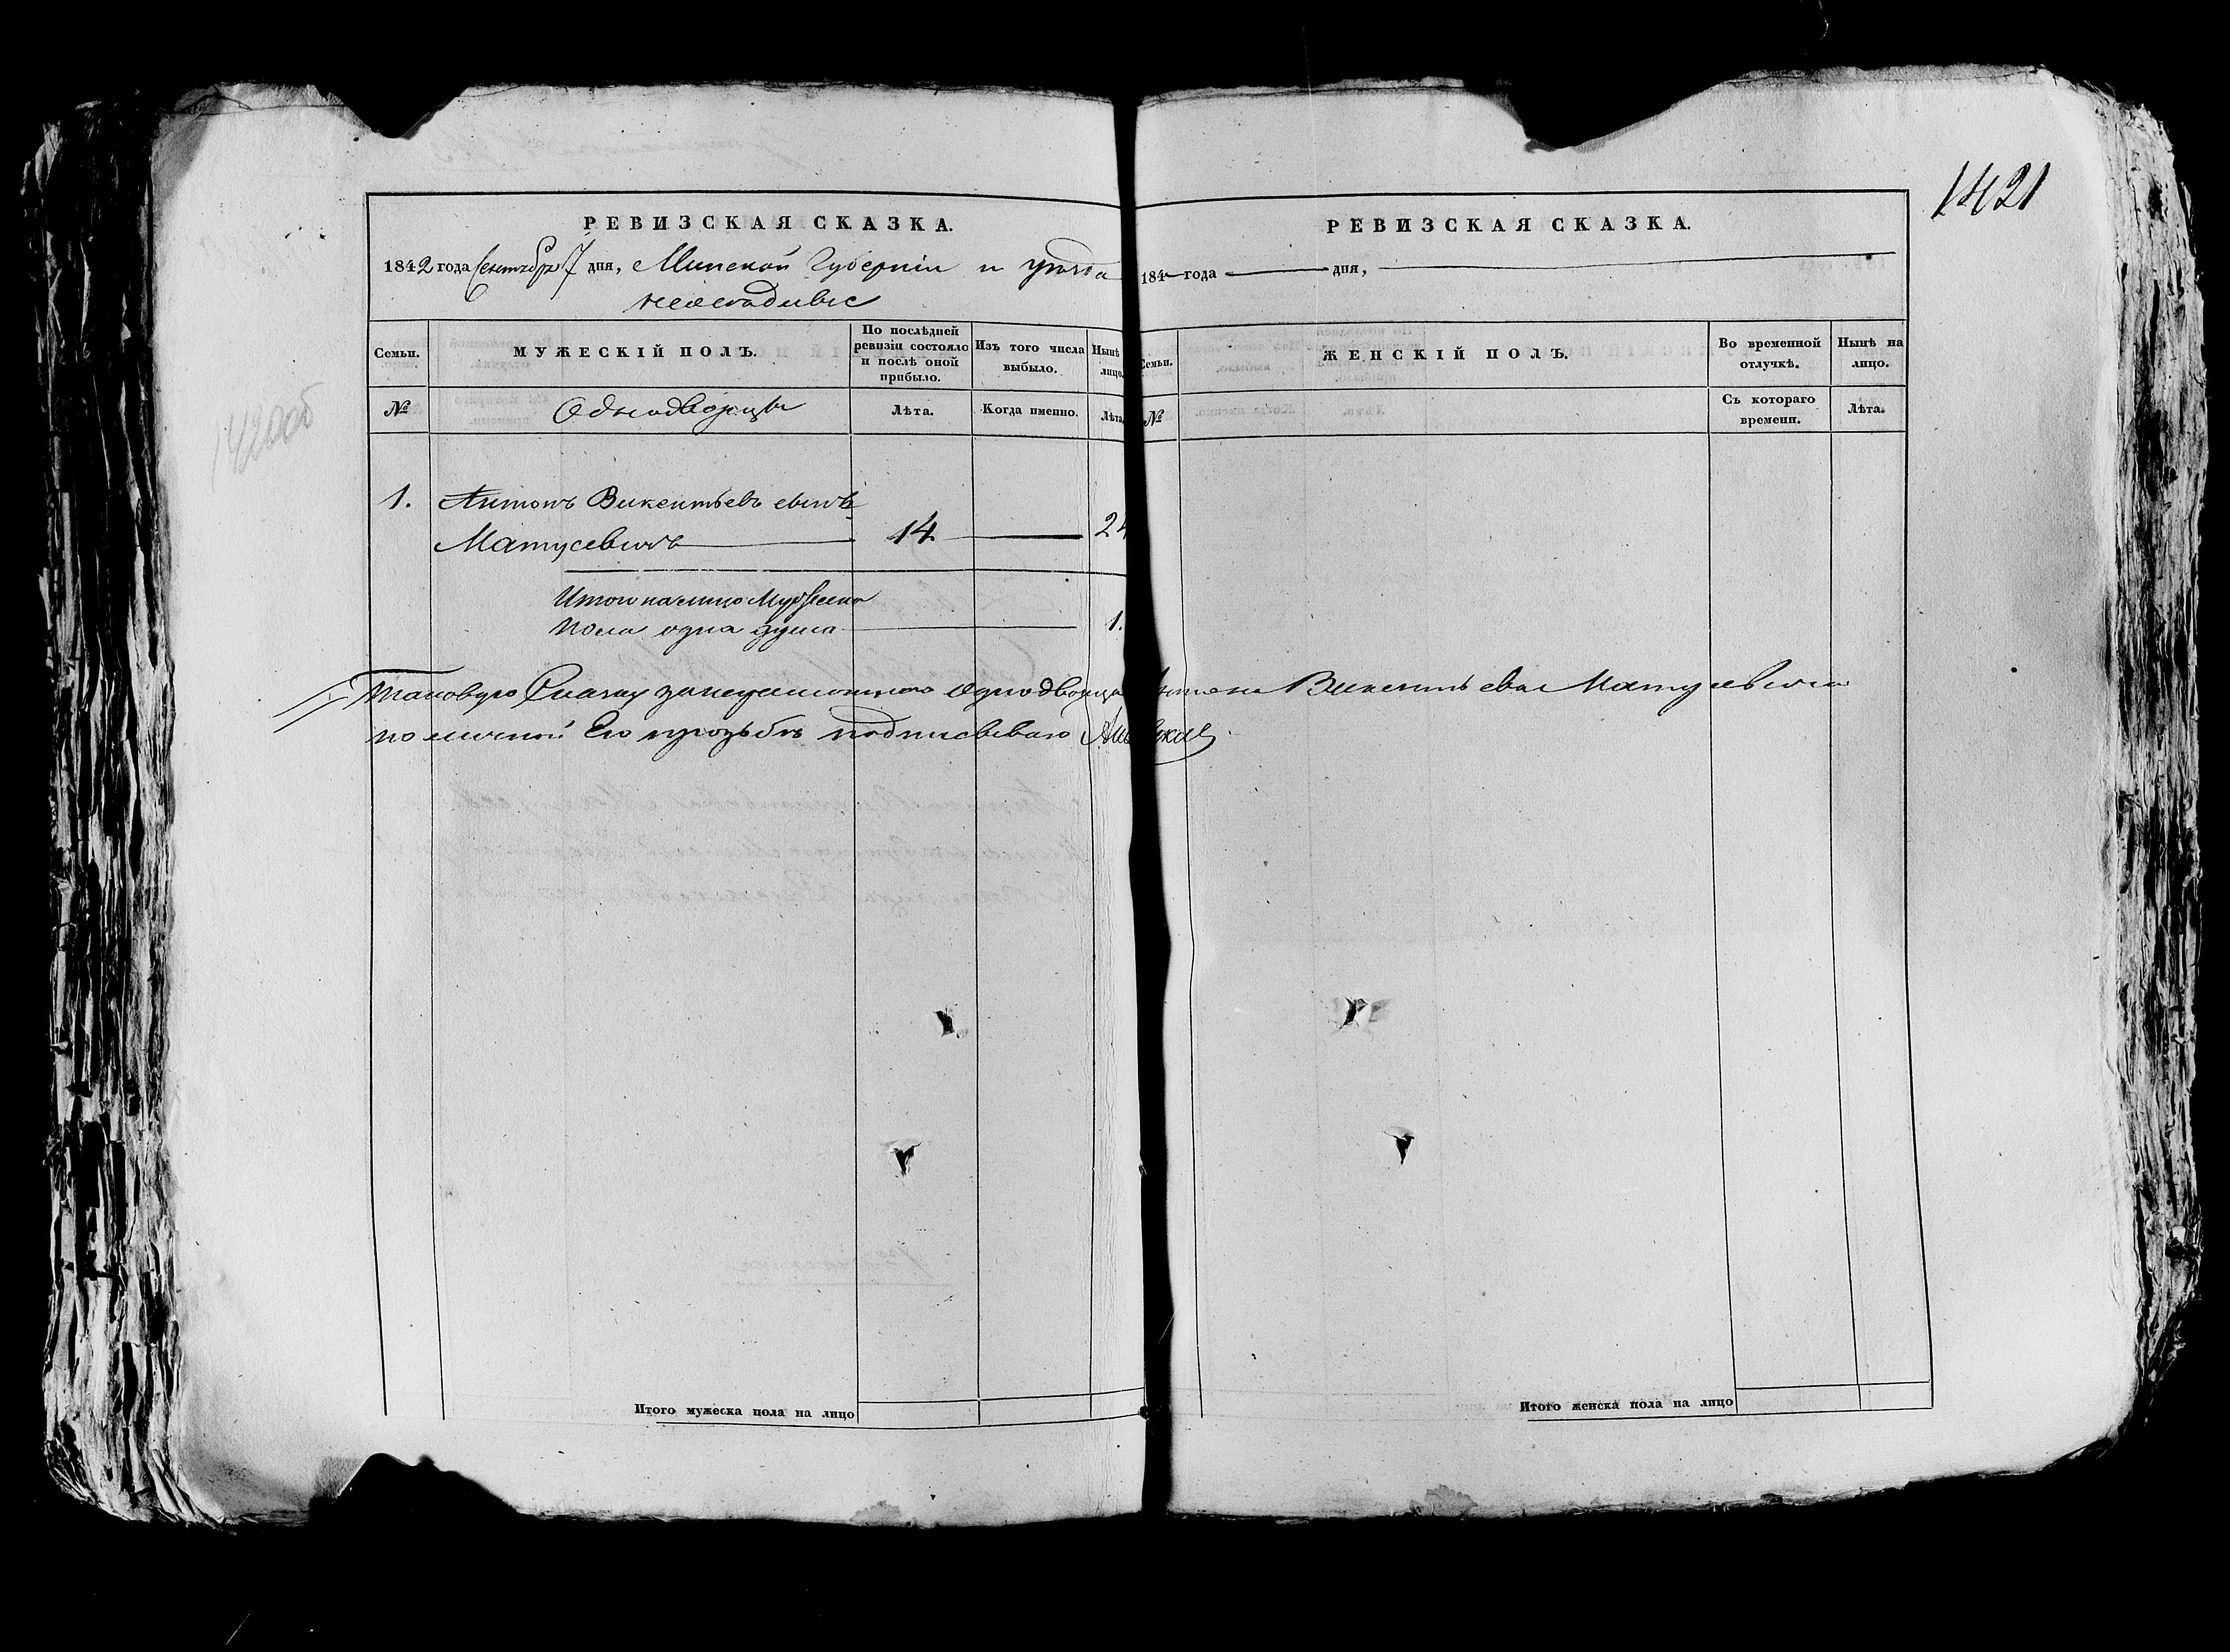 1421
1420об
РЕВИЗСКАЯ СКАЗКА.
1842 года Сентября 7 дня, Минской Губерніи и уѣзда
Семьи.
МУЖЕСКІЙ ПОЛЪ.
По послѣдней ревизіи состояло и послѣ оной прибыло.
Изъ того числа выбыло.
Нынѣ лицо.
№
Однодворцы
Лѣта.
Когда именно.
Лѣта
1. Антонъ Викентьевъ сынъ
Матусевичъ 14 24
Итого налицо Мужеска
пола одна душа 1.
РЕВИЗСКАЯ СКАЗКА.
184 года дня,
Семьи.
ЖЕНСКІЙ ПОЛЪ.
Во временной отлучкѣ.
Нынѣ на лицо.
№
Съ котораго времени.
Лѣта.
Таковую Сказку за неграмотного однодворца Антона Викентьева Матусевича
по личной Его прозьбѣ подписываю
Итого мужеска пола на лицо
Итого женска пола на лицо